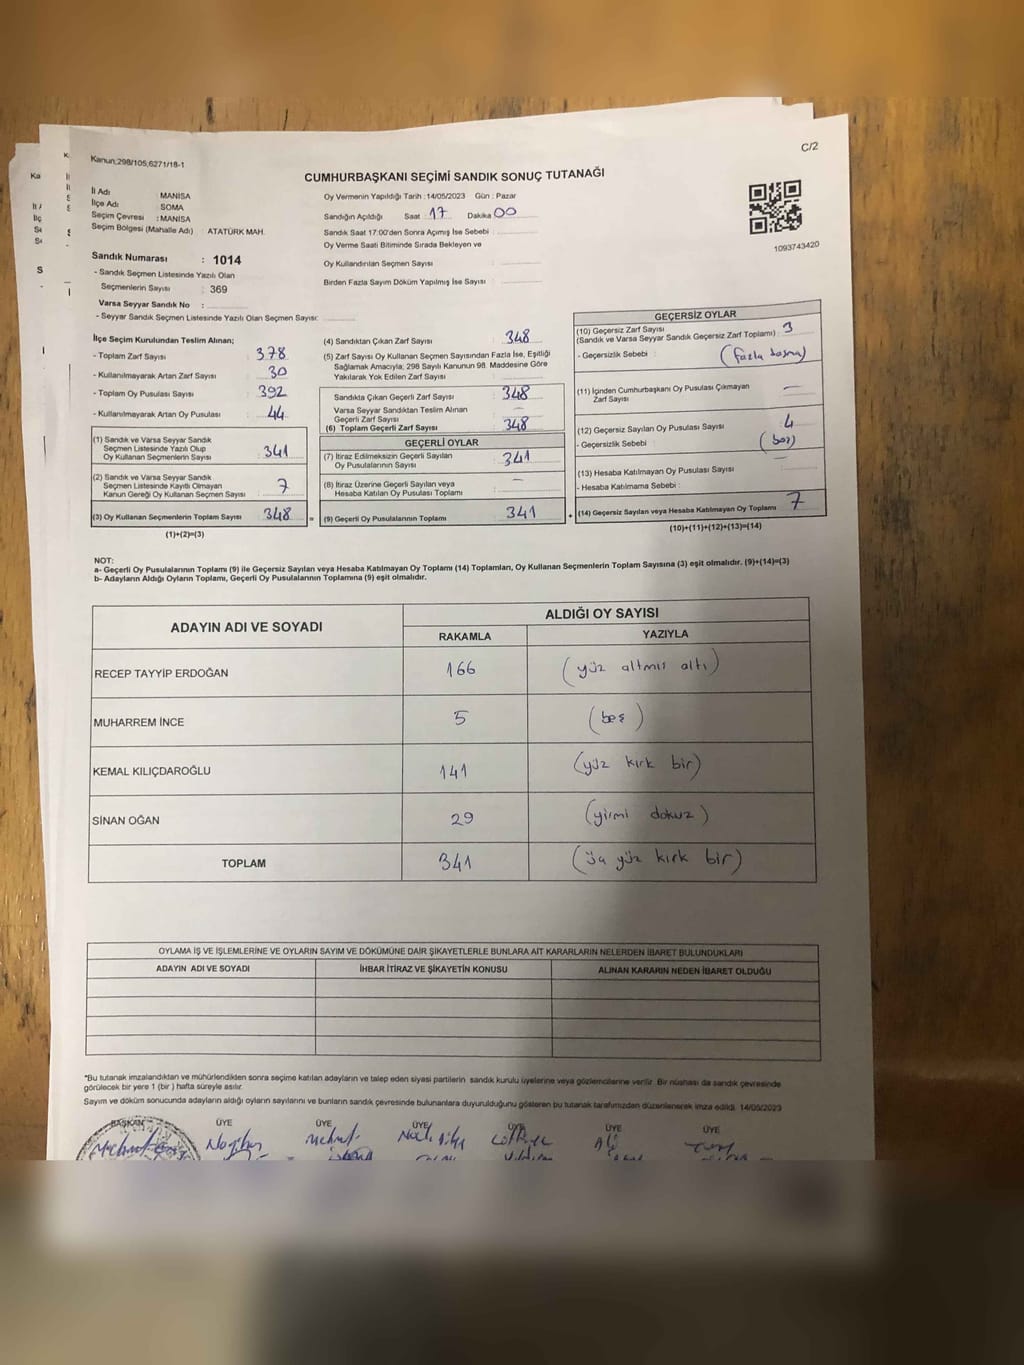 C/2
Kanun;298/105,6271/18-1
CUMHURBAŞKANI SEÇİMİ SANDIK SONUÇ TUTANAĞI
İl Adı : MANİSA
İlçe Adı : SOMA
Seçim Çevresi : MANİSA
Seçim Bölgesi (Mahalle Adı) : ATATÜRK MAH.
Oy Vermenin Yapıldığı Tarih : 14/05/2023 Gün : Pazar
Sandığın Açıldığı Saat 17 Dakika 00
Sandık Saat 17:00'den Sonra Açılmış İse Sebebi :
Oy Verme Saati Bitiminde Sırada Bekleyen ve
Oy Kullandırılan Seçmen Sayısı :
Birden Fazla Sayım Döküm Yapılmış İse Sayısı :
1093743420
Sandık Numarası : 1014
- Sandık Seçmen Listesinde Yazılı Olan
Seçmenlerin Sayısı : 369
Varsa Seyyar Sandık No :
- Seyyar Sandık Seçmen Listesinde Yazılı Olan Seçmen Sayısı:
İlçe Seçim Kurulundan Teslim Alınan;
- Toplam Zarf Sayısı : 378
- Kullanılmayarak Artan Zarf Sayısı : 30
- Toplam Oy Pusulası Sayısı : 392
- Kullanılmayarak Artan Oy Pusulası : 44
(1) Sandık ve Varsa Seyyar Sandık
Seçmen Listesinde Yazılı Olup
Oy Kullanan Seçmenlerin Sayısı : 341
(2) Sandık ve Varsa Seyyar Sandık
Seçmen Listesinde Kayıtlı Olmayan
Kanun Gereği Oy Kullanan Seçmen Sayısı : 7
(3) Oy Kullanan Seçmenlerin Toplam Sayısı : 348 =
(1)+(2)=(3)
(4) Sandıktan Çıkan Zarf Sayısı : 348
(5) Zarf Sayısı Oy Kullanan Seçmen Sayısından Fazla İse, Eşitliği
Sağlamak Amacıyla; 298 Sayılı Kanunun 98. Maddesine Göre
Yakılarak Yok Edilen Zarf Sayısı :
Sandıkta Çıkan Geçerli Zarf Sayısı : 348
Varsa Seyyar Sandıktan Teslim Alınan
Geçerli Zarf Sayısı : —
(6) Toplam Geçerli Zarf Sayısı : 348
GEÇERLİ OYLAR
(7) İtiraz Edilmeksizin Geçerli Sayılan
Oy Pusulalarının Sayısı : 341
(8) İtiraz Üzerine Geçerli Sayılan veya
Hesaba Katılan Oy Pusulası Toplamı : —
(9) Geçerli Oy Pusulalarının Toplamı : 341 +
GEÇERSİZ OYLAR
(10) Geçersiz Zarf Sayısı
(Sandık ve Varsa Seyyar Sandık Geçersiz Zarf Toplamı) : 3
- Geçersizlik Sebebi : (fazla basma)
(11) İçinden Cumhurbaşkanı Oy Pusulası Çıkmayan
Zarf Sayısı : —
(12) Geçersiz Sayılan Oy Pusulası Sayısı : 4
- Geçersizlik Sebebi : (boş)
(13) Hesaba Katılmayan Oy Pusulası Sayısı : —
- Hesaba Katılmama Sebebi :
(14) Geçersiz Sayılan veya Hesaba Katılmayan Oy Toplamı : 7
(10)+(11)+(12)+(13)=(14)
NOT:
a- Geçerli Oy Pusulalarının Toplamı (9) ile Geçersiz Sayılan veya Hesaba Katılmayan Oy Toplamı (14) Toplamları, Oy Kullanan Seçmenlerin Toplam Sayısına (3) eşit olmalıdır. (9)+(14)=(3)
b- Adayların Aldığı Oyların Toplamı, Geçerli Oy Pusulalarının Toplamına (9) eşit olmalıdır.
ADAYIN ADI VE SOYADI
ALDIĞI OY SAYISI
RAKAMLA YAZIYLA
RECEP TAYYİP ERDOĞAN 166 (yüz altmış altı)
MUHARREM İNCE 5 (beş)
KEMAL KILIÇDAROĞLU 141 (yüz kırk bir)
SİNAN OĞAN 29 (yirmi dokuz)
TOPLAM 341 (üç yüz kırk bir)
OYLAMA İŞ VE İŞLEMLERİNE VE OYLARIN SAYIM VE DÖKÜMÜNE DAİR ŞİKAYETLERLE BUNLARA AİT KARARLARIN NELERDEN İBARET BULUNDUKLARI
ADAYIN ADI VE SOYADI İHBAR İTİRAZ VE ŞİKAYETİN KONUSU ALINAN KARARIN NEDEN İBARET OLDUĞU
*Bu tutanak imzalandıktan ve mühürlendikten sonra seçime katılan adayların ve talep eden siyasi partilerin sandık kurulu üyelerine veya gözlemcilerine verilir. Bir nüshası da sandık çevresinde
görülecek bir yere 1 (bir ) hafta süreyle asılır.
Sayım ve döküm sonucunda adayların aldığı oyların sayılarını ve bunların sandık çevresinde bulunanlara duyurulduğunu gösteren bu tutanak tarafımızdan düzenlenerek imza edildi. 14/05/2023
BAŞKAN ÜYE ÜYE ÜYE ÜYE ÜYE ÜYE
Mehmet Ali